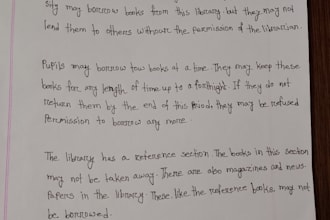 may borrow books from this library. but they may not
lend them to others without the permission of the librarian.
Pupils may borrow tow books at a time. They may keep these
books for any length of time up to a forthight. If they do not
return them by the end of this Period, they may be refused
Permission to borrow any more.
The library has a reference section The books in this section
may not be taken away. There are also magazines and news-
Papers in the library. These like the reference books, may not
be borrowed.